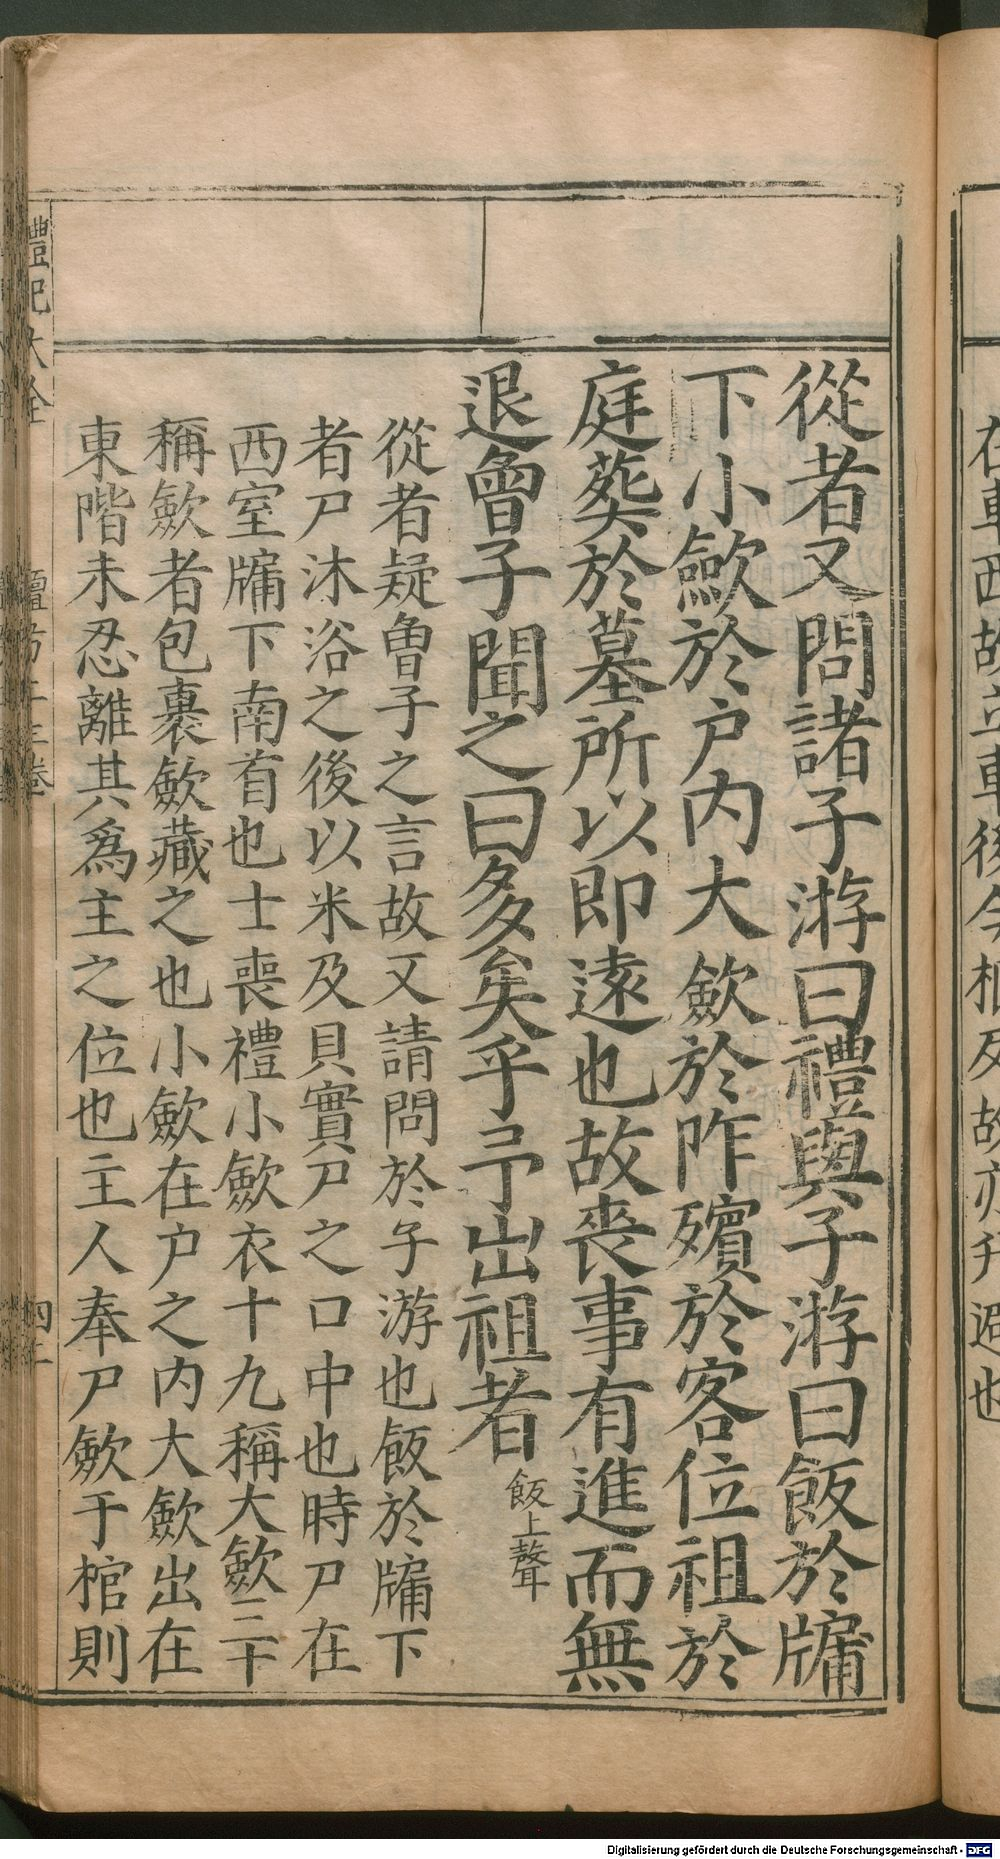 從者又問諸子游曰禮與子游曰飯於牖
下小斂於户内大斂於阼殯於客位祖於
庭葬於墓所以即遠也故喪事有進而無
退曾子聞之曰多矣乎予出祖者
飯上聲
從者疑曾子之言故又請問於子游也飯於牖下
者尸沐浴之後以米及貝實尸之口中也時尸在
西室牖下南首也士喪禮小斂衣十九稱大斂三十
稱斂者包裹斂藏之也小斂在户之内大斂出在
東階未忍離其為主之位也主人奉尸斂于棺則
禮記大全
檀弓上三卷
在車西故立車後今柩反故亦升過也
Digitalisierung gefördert durch die Deutsche Forschungsgemeinschaft - DFG